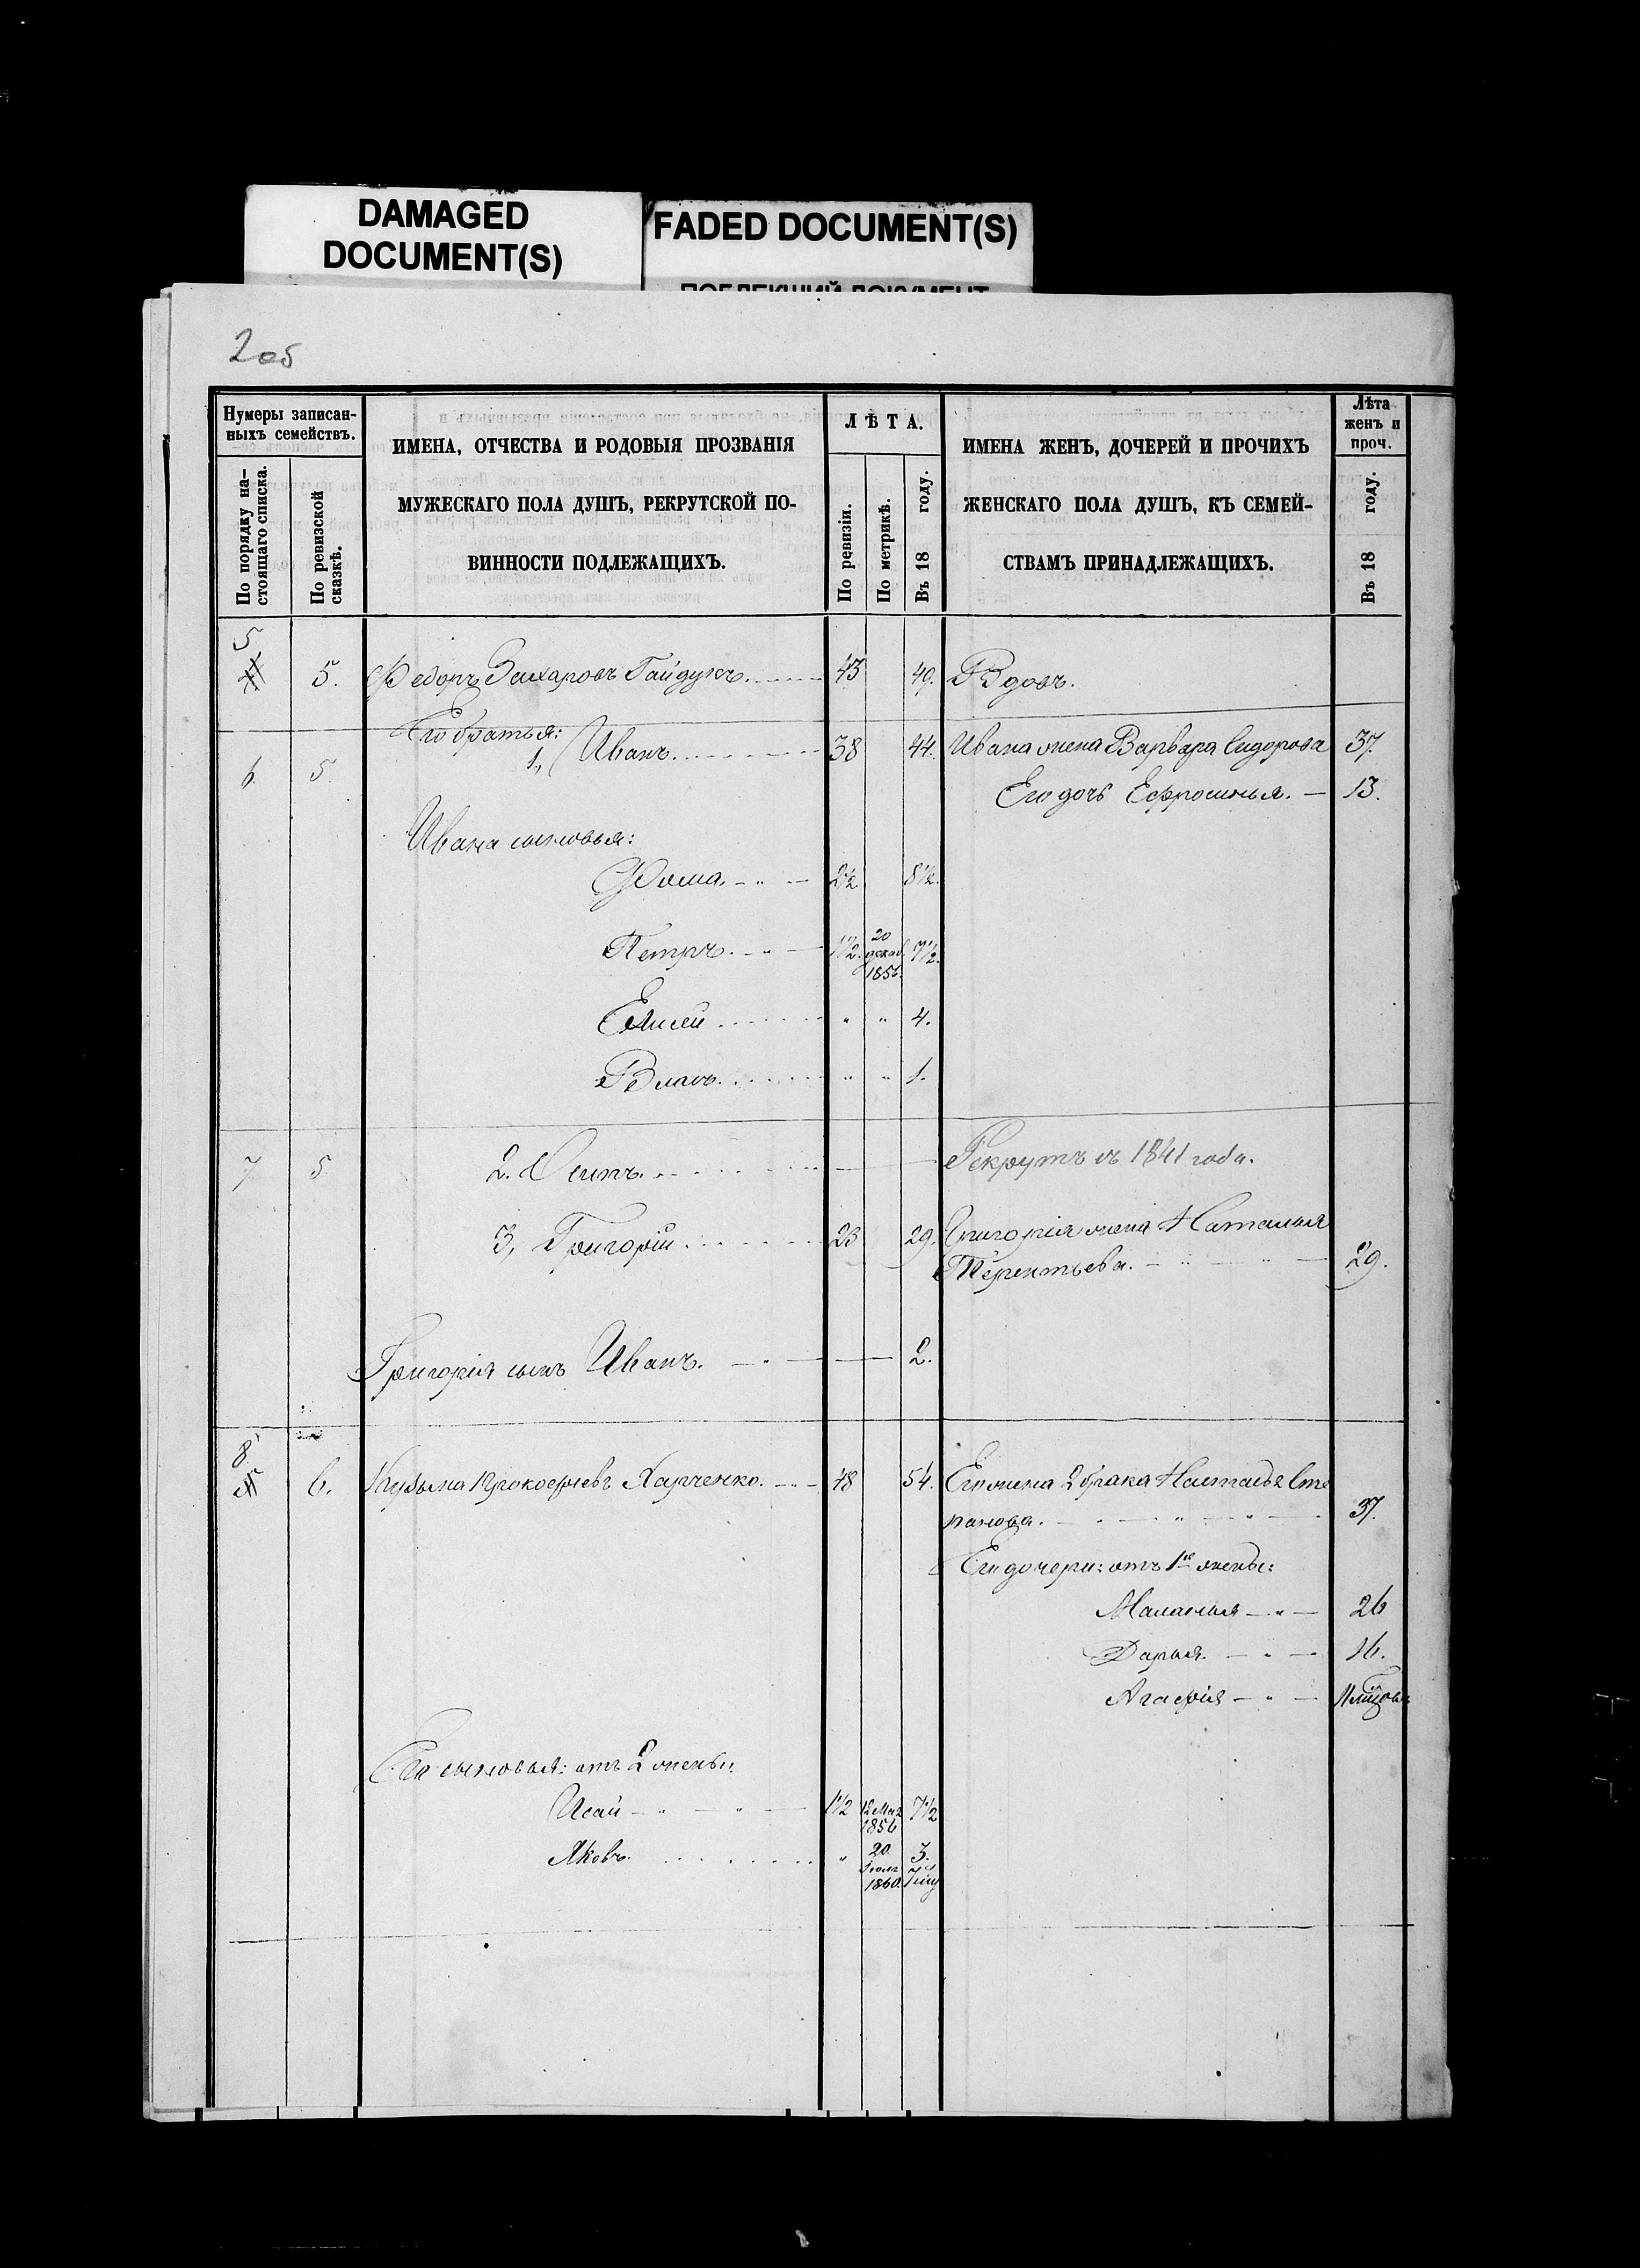 DAMAGED
DOCUMENT(S)
FADED DOCUMENT(S)
ПОБЛЕКШИЙ ДОКУМЕНТ
2об
Нумеры записан-
ныхъ семействъ.
По порядку на-
стоящаго списка.
По ревизской
сказкѣ.
ИМЕНА, ОТЧЕСТВА И РОДОВЫЯ ПРОЗВАНІЯ
МУЖЕСКАГО ПОЛА ДУШЪ, РЕКРУТСКОЙ ПО-
ВИННОСТИ ПОДЛЕЖАЩИХЪ.
ЛѢТА.
По ревизіи.
По метрикѣ.
Въ 18 году.
ИМЕНА ЖЕНЪ, ДОЧЕРЕЙ И ПРОЧИХЪ
ЖЕНСКАГО ПОЛА ДУШЪ, КЪ СЕМЕЙ-
СТВАМЪ ПРИНАДЛЕЖАЩИХЪ.
Лѣта
женъ и
проч.
Въ 18 году.
5
4 5. Федоръ Захаровъ Гайдукъ. 43 49. Вдовъ.
Его братья:
6. 5. 1, Иванъ. 38 44. Ивана жена Варвара Сидорова 37.
Его дочь Ефросинья. — 13.
Ивана сыновья:
Фома. 2½ 8½.
Петръ. 1½. 20 декаб. 1856. 7½.
Елисей " " 4.
Власъ. " " 1.
7 5 2. Осипъ. Рекрутъ съ 1841 года.
3, Григорій. 23 29. Григорія жена Наталья
Терентьева. 29.
Григорія сынъ Иванъ. 2.
8
5 6. Кузьма Прокофьевъ Харченко. 48 54. Его жена 2 брака Настасья Сте
панова. 37.
Его дочери: отъ 1й жены:
Маланья 26
Дарья. 16.
Агафія
Его сыновья: отъ 2 жены:
Исай 1½ 12 Мая 1856 7½
Яковъ. " 20 1860. 3.